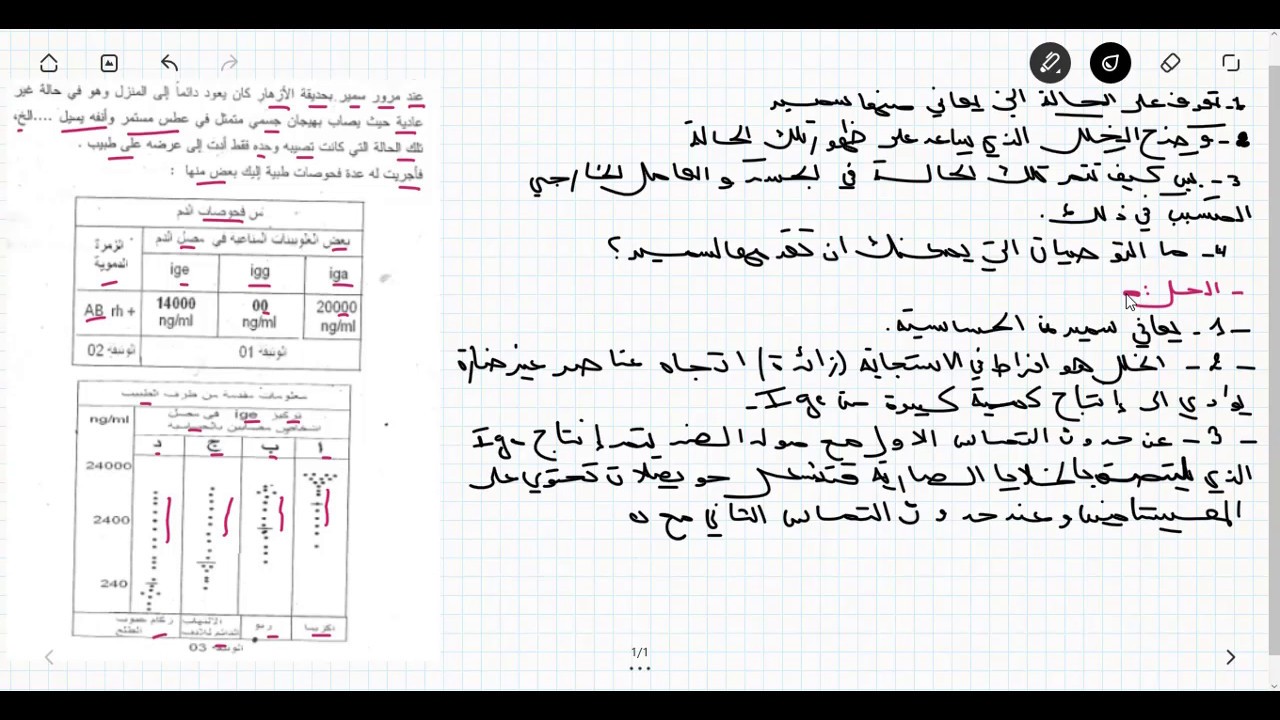 عند مرور سمير بحديقة الأزهار كان يعود دائماً إلى المنزل وهو في حالة غير
عادية حيث يصاب بهيجان جسمي متمثل في عطس مستمر وأنفه يسيل ....الخ،
تلك الحالة التي كانت تصيبه وحده فقط أدت إلى عرضه على طبيب .
فأجريت له عدة فحوصات طبية إليك بعض منها :
فحوصات الدم
بعض الغلوبينات المناعية في مصل الدم
الزمرة الدموية
iga
igg
ige
20000 ng/ml
00 ng/ml
14000 ng/ml
AB rh +
الوثيقة 01
الوثيقة 02
معلومات مقدمة من طرف الطبيب
تركيز ige في مصل
أشخاص مصابين بالحساسية
ng/ml
ا
ب
ج
د
24000
2400
240
اكزيما
ربو
الوثيقة 03
1- تعرف على الحالة التي يعاني منها سمير
2- وضح الخلل الذي يساعد على ظهور تلك الحالة
3- بين كيف تتم تلك الحالة في الجسم و العامل الخارجي
المتسبب في ذلك.
4- ما التوصيات التي يمكنك ان تقدمها لسمير؟
- الحل:
1- يعاني سمير من الحساسية.
2- الخلل هو افراط في الاستجابة (زائدة) اتجاه عناصر غير ضارة
يؤدي الى إنتاج كمية كبيرة من Ige-
3- عن حدوث التماس الاول مع مولد الضد يتم إنتاج Ige
الذي يلتصق بالخلايا الصارية فتشكل حويصلات تحتوي على
الهيستامين وعند حدوث التماس الثاني مع
1/1